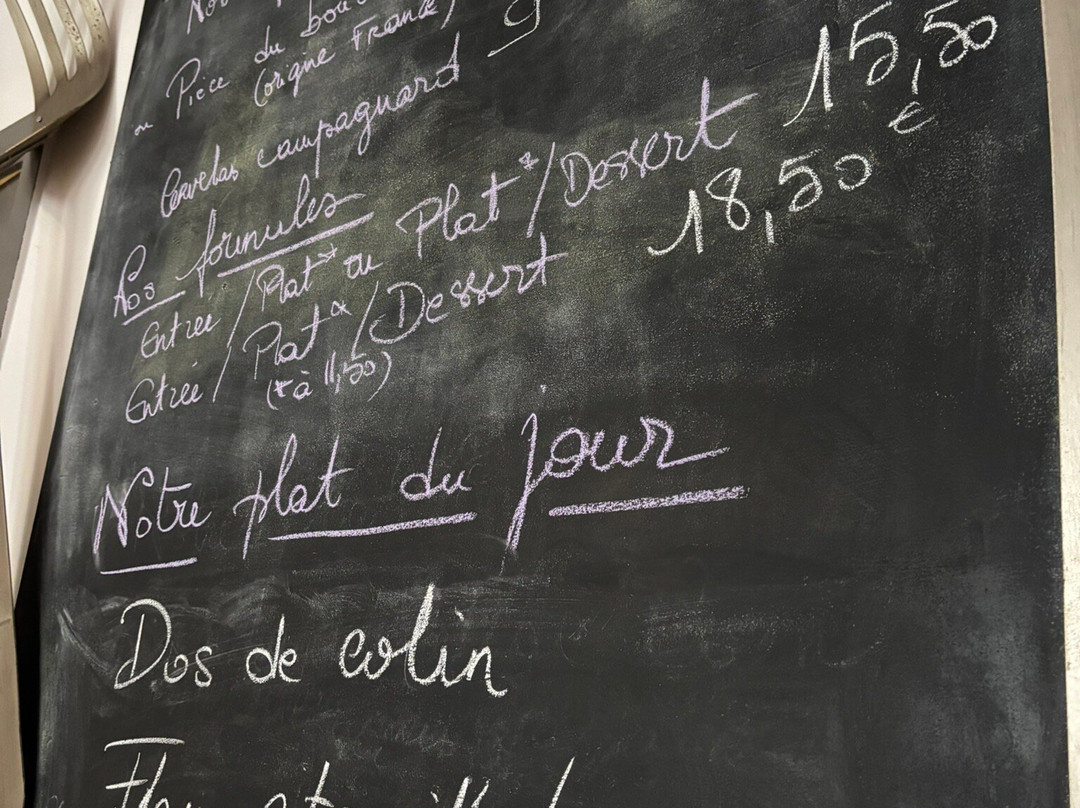 Pièce du
ou (origine France)
Cervelas campagnard 9
Nos formules
Entrée / Plat* ou Plat* / Dessert 15,50 €
Entrée / Plat* / Dessert 18,50
(* à 11,50)
Notre plat du jour
Dos de colin